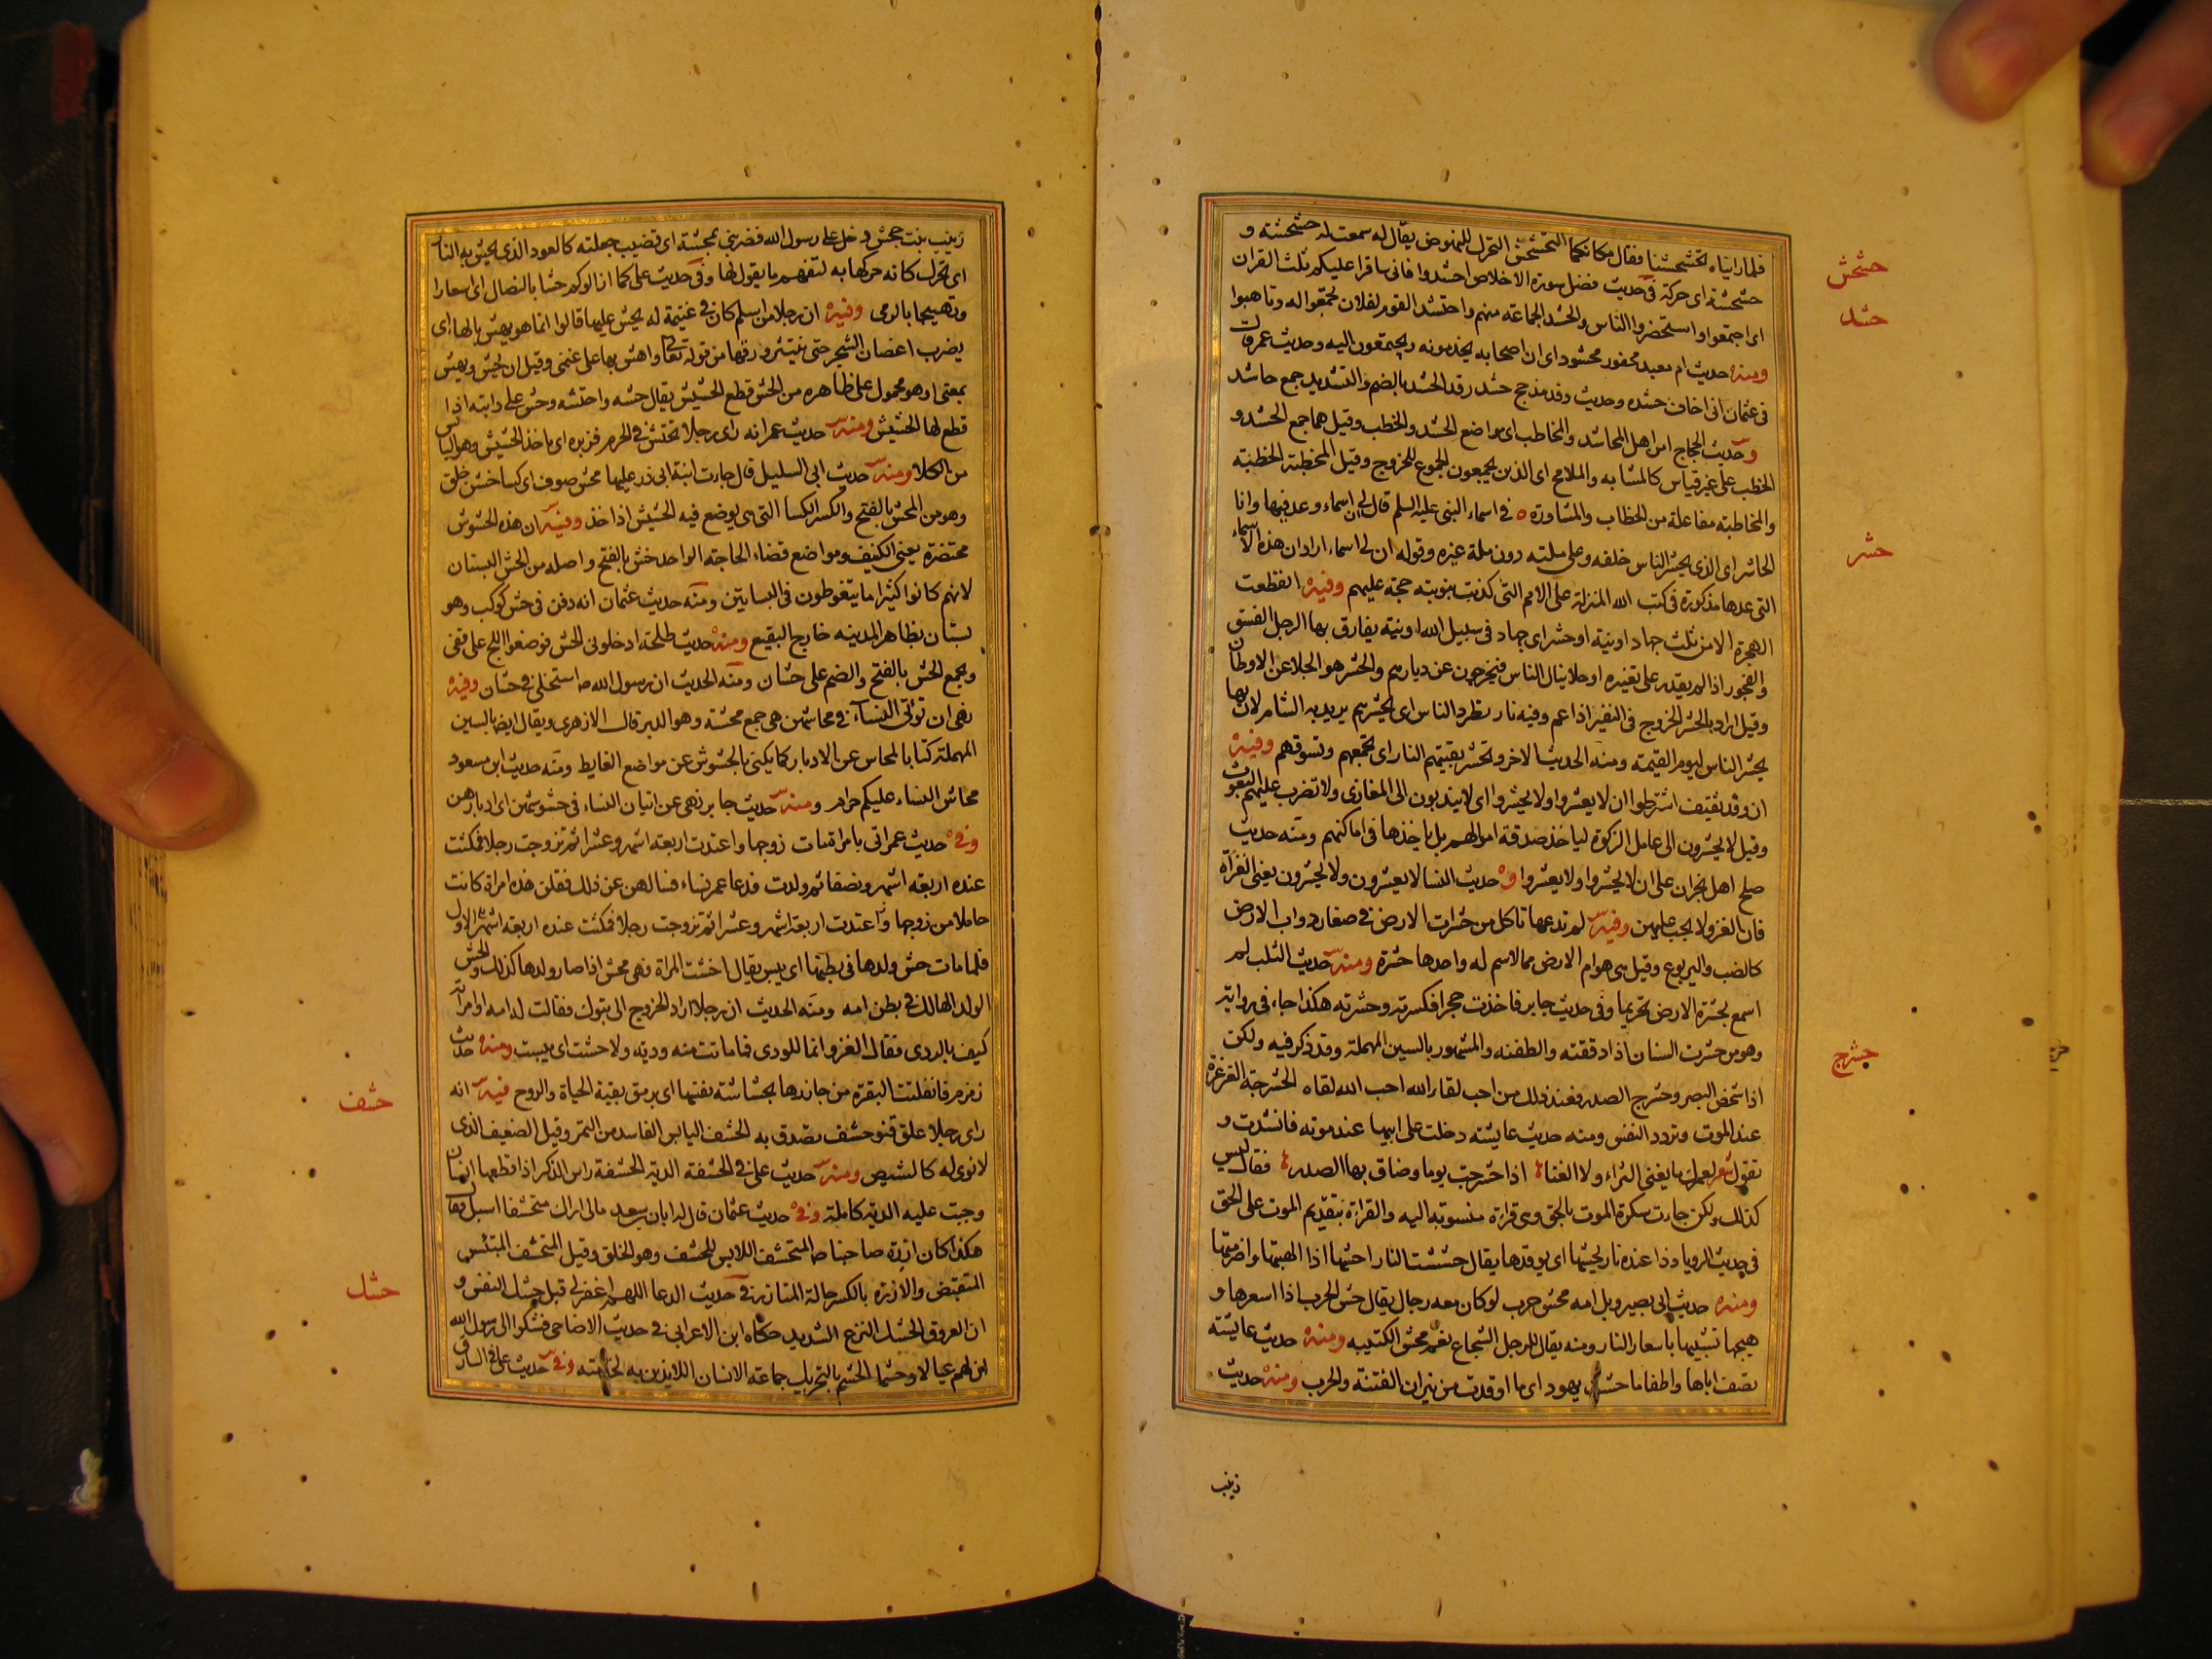 فلما رايناه تحشحشنا فقال مكانكما التحشحش التحرك للنهوض يقال له سمعت له حشحشته و
حشحش
حشحشة اى حركة فى حديث فضل سورة الاخلاص احشدوا فانى ساقرا عليكم ثلث القران
حشد
اى اجتمعوا واستحضروا الناس والحشد الجماعة منهم واحتشد القوم لفلان تجمعوا له وتاهبوا
ومنه حديث ام معبد محفود محشود اى ان اصحابه يخدمونه ويجتمعون اليه وحديث عمر قال
فى عثمان انى اخاف حشده وحديث وفد مذحج حشد رفد الحشد بالضم والتشديد جمع حاشد
وحديث الحجاج امن اهل المحاشد والمخاطب اى مواضع الحشد والخطب وقيل هما جمع الحشد و
الخطب على غير قياس كالمشابه والملامح اى الذين يجمعون الجموع للخروج وقيل المخطبة الخطبة
والمخاطبة مفاعلة من الخطاب والمشاورة ٥ فى اسماء النبى عليه السلم قال ان لى اسماء وعد فيها وانا
حشر
الحاشر اى الذى يحشر الناس خلفه وعلى ملته دون ملة غيره وقوله ان لى اسماء اراد ان هذه الاسماء
التى عدها مذكورة فى كتب الله المنزلة على الامم التى كذبت بنوبته حجة عليهم وفيه انقطعت
الهجرة الا من ثلث جهاد او نية او حشر اى جهاد فى سبيل الله او نية يفارق بها الرجل الفسق
والفجور اذا لم يقدر على تغييره او جلا ينال الناس فيخرجون عن ديارهم والحشر هو الجلا عن الاوطان
وقيل اراد بالحشر الخروج فى النفير اذا عم وفيه نار تطرد الناس اى محشرهم يريد به الشام لان بها
يحشر الناس ليوم القيمة ومنه الحديث الاخر وتحشر بقيتهم النار اى تجمعهم وتسوقهم وفيه
ان وفد ثقيف اشترطوا ان لا يعشروا ولا يحشروا اى لا يندبون الى المغازى ولا تضرب عليهم البعوث
وقيل لا يحشرون الى عامل الزكوة لياخذ صدقة اموالهم بل ياخذها فى اماكنهم ومنه حديث
صلح اهل نجران على ان لا يحشروا ولا يعشروا و حديث النسا لا يعشرون ولا يحشرون يعنى الغزاة
فان الغزو لا يجب عليهن وفيه لم تدعها تاكل من حشرات الارض هى صغار دواب الارض
كالضب واليربوع وقيل هى هوام الارض مما لا اسم له واحدها حشرة ومنه حديث التلب لم
اسمع لحشرة الارض تحريما وفى حديث جابر فاخذت حجرا فكسرته وحشرته هكذا جاء فى رواية
وهو من حشرت السنان اذا دققته والطفته والمشهور بالسين المهملة وقد ذكر فيه ولكن
حشرج
اذا شخص البصر وحشرج الصدر فعند ذلك من احب لقاء الله احب الله لقاه الحشرجة الغرغرة
عند الموت وتردد النفس ومنه حديث عايشة دخلت على ابيها عند موته فانشدت و
تقول شعر لعمرك ما يغنى الثراء ولا الغنا اذا حشرجت يوما وضاق بها الصدر فقال ليس
كذلك ولكن جاءت سكرة الموت بالحق وهى قراءة منسوبة اليه والقراءة بتقديم الموت على الحق
فى حديث الرويا واذا عنده نار يحشها اى يوقدها يقال حششت النار احشها اذا الهبتها واضرمتها
ومنه حديث ابى بصير ويل امه محش حرب لو كان معه رجال يقال حش الحرب اذا اسعرها و
هيجها تشبيها باسعار النار ومنه يقال للرجل الشجاع نعم محش الكتيبه ومنه حديث عايشة
تصف اباها واطفا ما حشت يهود اى ما اوقدت من نيران الفتنة والحرب ومنه حديث
زينب
زينب بنت جحش دخل على رسول الله فضربنى بمحشة اى قضيب جعلته كالعود الذى يحش به النار
اى تحرك كانه حركها به لتفهم ما يقول لها وفى حديث على كما ازالوكم حشا بالنصال اى اسعارا
وتهييجا بالرمى وفيه ان رجلا من اسلم كان فى غنيمة له يحش عليها قالوا انما هو يهش بالها اى
يضرب اغصان الشجر حتى ينتثر ورقها من قوله تعالى واهش بها على غنمى وقيل ان يحش ويهش
بمعنى او هو محمول على ظاهره من الحش قطع الحشيش يقال حشه واحتشه وحش على دابته اذا
قطع لها الحشيش ومنه حديث عمر انه راى رجلا يحتش فى الحرم فزبره اى ياخذ الحشيش وهو اليابس
من الكلا ومنه حديث ابى السليل قال جاءت ابنة ابى ذر عليها محش صوف اى كسا خشن خلق
وهو من المحش بالفتح والكسر الكسا التى يوضع فيه الحشيش اذا خذ وفيه ان هذه الحشوش
محتضرة يعنى الكنف ومواضع قضاء الحاجة الواحد حش بالفتح واصله من الحش البستان
لانهم كانوا كثيرا ما يتغوطون فى البساتين ومنه حديث عثمان انه دفن فى حش كوكب وهو
بستان بظاهر المدينه خارج البقيع ومنه حديث طلحة ادخلونى الحش فوضعوا اللج على قفى
ويجمع الحش بالفتح والضم على حشان ومنه الحديث ان رسول الله ص استخلى فى حشان وفيه
نهى ان توتى النساء فى محاشهن هى جمع محشة وهو الدبر قال الازهرى ويقال ايضا بالسين
المهملة كنا بالمحاس عن الادبار كما يكنى بالحشوش عن مواضع الغايط ومنه حديث ابن مسعود
محاش النساء عليكم حرام ومنه حديث جابر نهى عن اتيان النساء فى حشوشهن اى ادبارهن
وفى حديث عمر اتى بامراة مات زوجها واعتدت اربعة اشهر وعشرا ثم تزوجت رجلا فمكثت
عنده اربعة اشهر ونصفا ثم ولدت فدعا عمر نساء فسالهن عن ذلك فقلن هذه امراة كانت
حاملا من زوجها واعتدت اربعة اشهر وعشرا ثم تزوجت رجلا فمكثت عنده اربعة اشهر الاول
فلما مات حش ولدها فى بطنها اى يبس يقال احشت المراة فهى محش اذا صار ولدها كذلك والحش
الولد الهالك فى بطن امه ومنه الحديث ان رجلا اراد الخروج الى تبوك فقالت له امه او امراته
كيف بالودى فقال الغزو انما للودى فما ماتت منه ودية ولا حشت اى يبست ومنه حديث
زمزم فانفلتت البقرة من جازرها بحشاشة نفسها اى برمق بقية الحياة والروح فيه انه
حشف
راى رجلا علق قنو حشف تصدق به الحشف اليابس الفاسد من التمر وقيل الضعيف الذى
لا نوى له كالشيص ومنه حديث على فى الحشفة الدية الحشفة راس الذكر اذا قطعها انسان
وجبت عليه الدية كاملة وفى حديث عثمان قال له ابان بن سعد مالى اراك متحشفا اسبل فقال
هكذا كان ازرة صاحبنا ص المتحشف اللابس للحشف وهو الخلق وقيل المتحشف المبتئس
المتقبض والازرة بالكسر حالة المتازر فى حديث الدعا اللهم اغفر لى قبل حشك النفس و
حشك
ان العروق الحشك النزع الشديد حكاه ابن الاعرابى فى حديث الاضاحى فشكوا الى رسول الله
ان لهم عيالا وحشما الحشم بالتحريك جماعة الانسان اللايذين به لخدمته وفى حديث على فى السارق